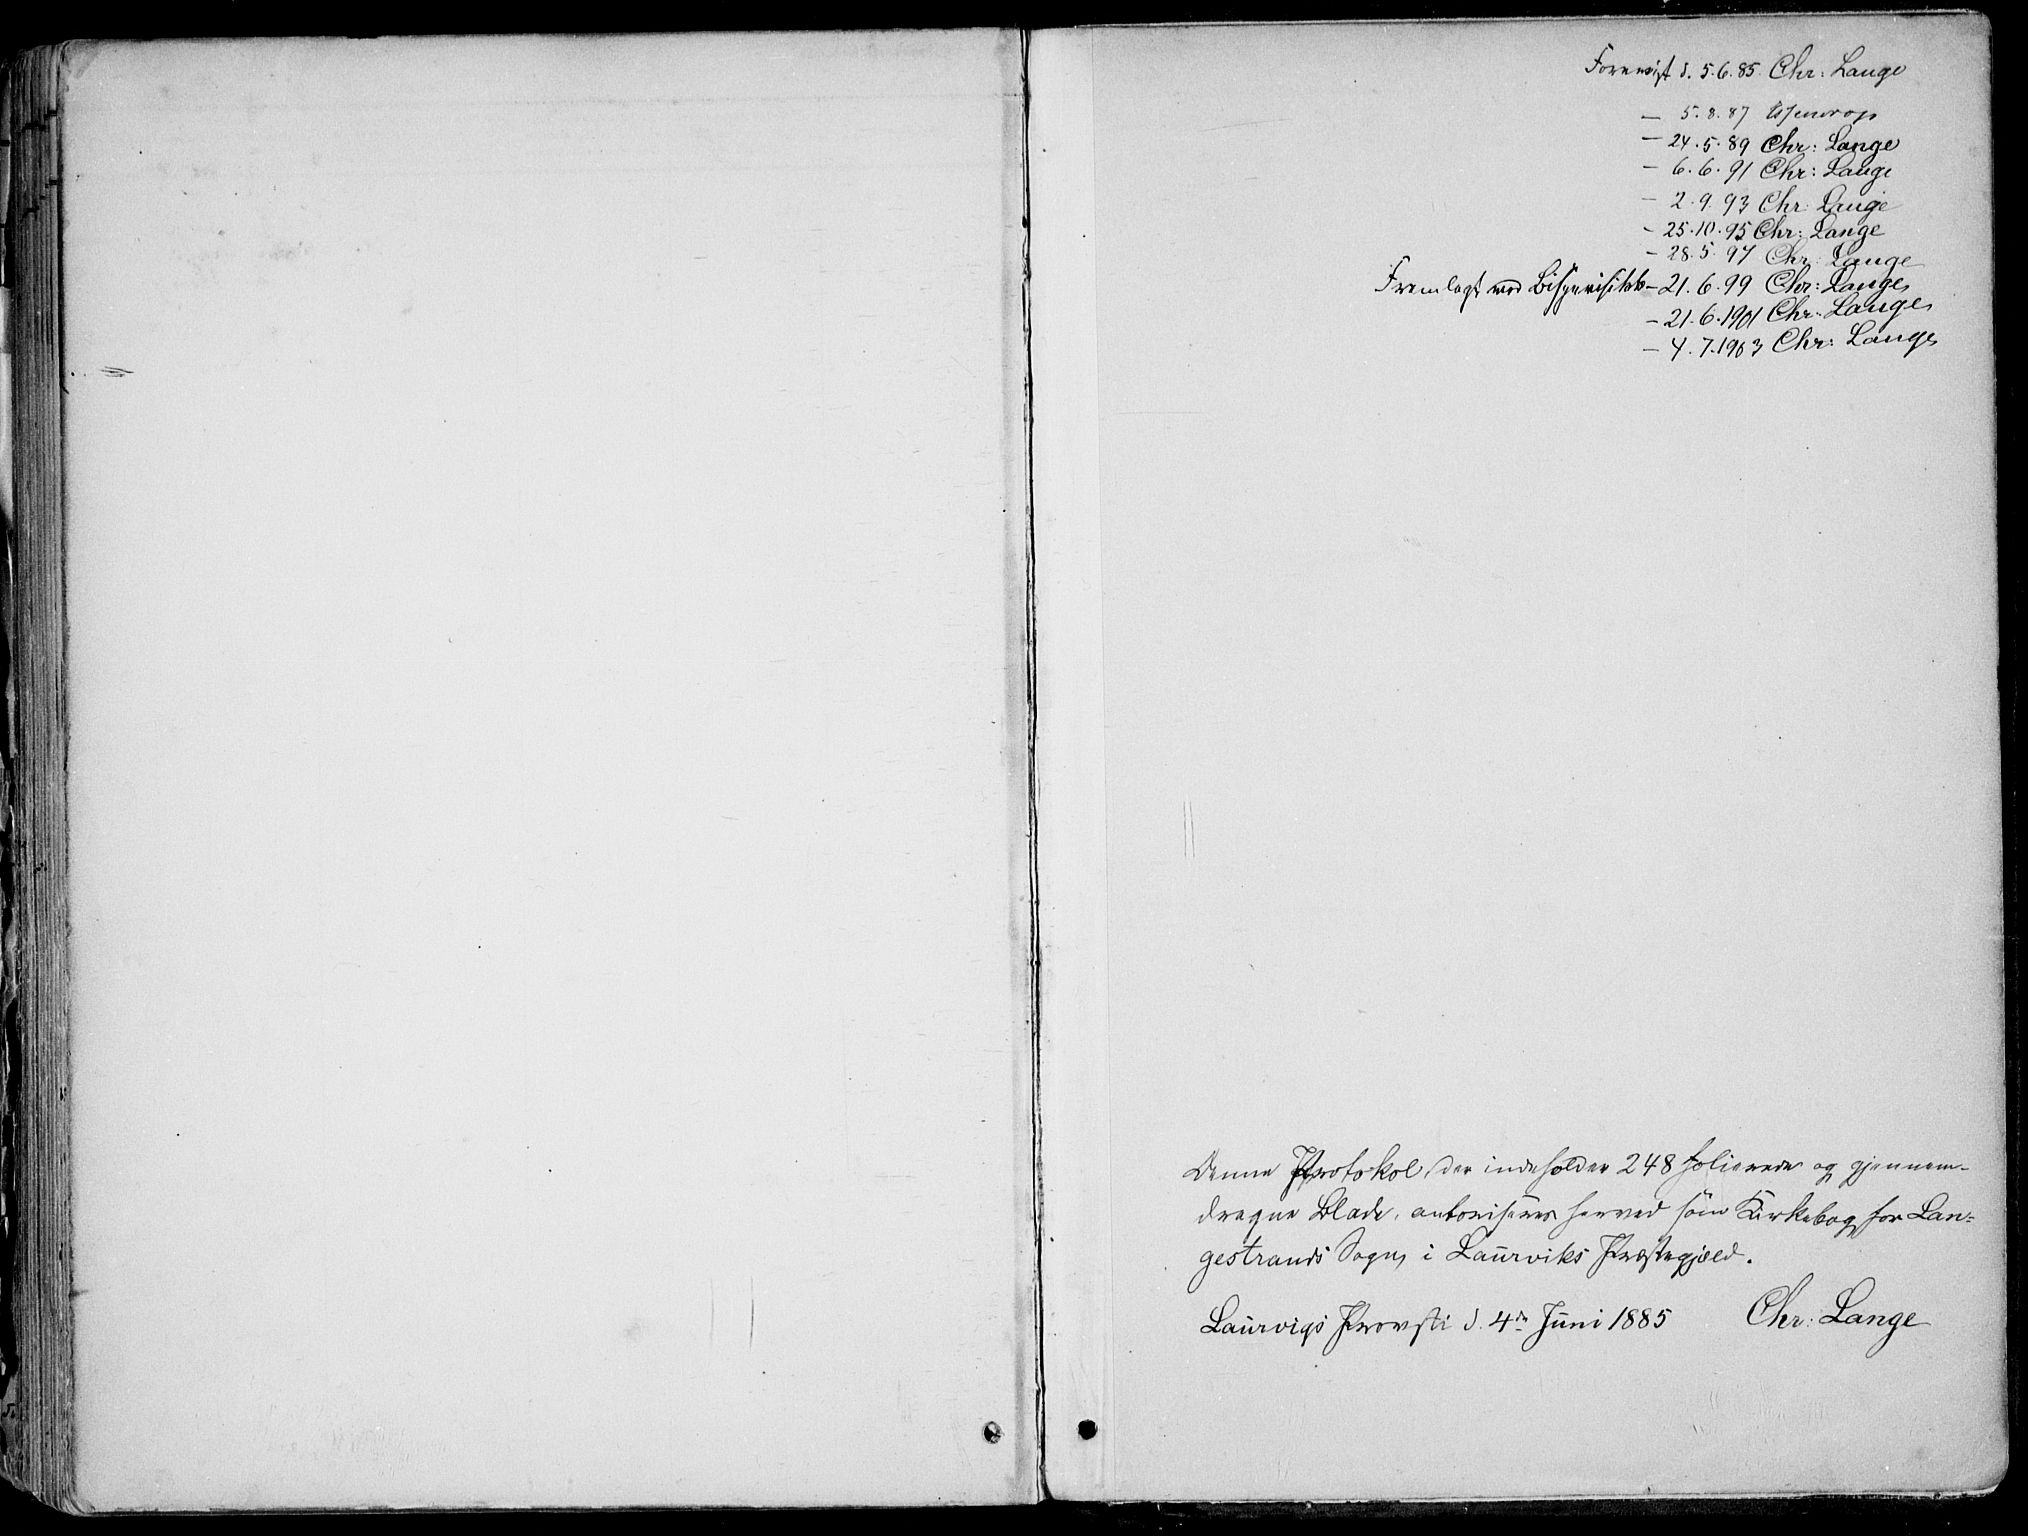 Forevist d. 5.6.85. Chr: Lange
— 5.8.87
— 24.5.89 Chr: Lange
— 6.6.91 Chr: Lange
— 2.9.93 Chr: Lange
— 25.10.95 Chr: Lange
— 28.5.97 Chr: Lange
Fremlagt ved Bispevisitats — 21.6.99 Chr: Lange
— 21.6.1901 Chr: Lange
— 4.7.1903 Chr: Lange
Denne Protokol, der indeholder 248 folierede og gjennem-
dragne Blade, autoriseres herved som Kirkebog for Lan=
gestrands Sogn i Laurviks Præstegjæld.
Laurvigs Provsti d. 4de Juni 1885 Chr: Lange